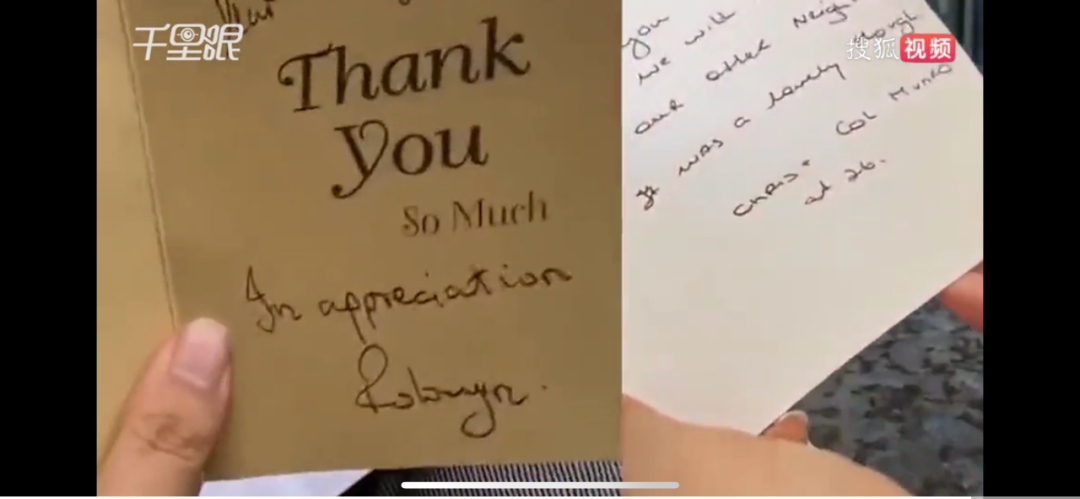 千里眼
Thank
You
So Much
In appreciation
Robwyn.
you
we will
our other Neigh
It was a lovely
Chris. Col Munro
at 26.
搜狐视频